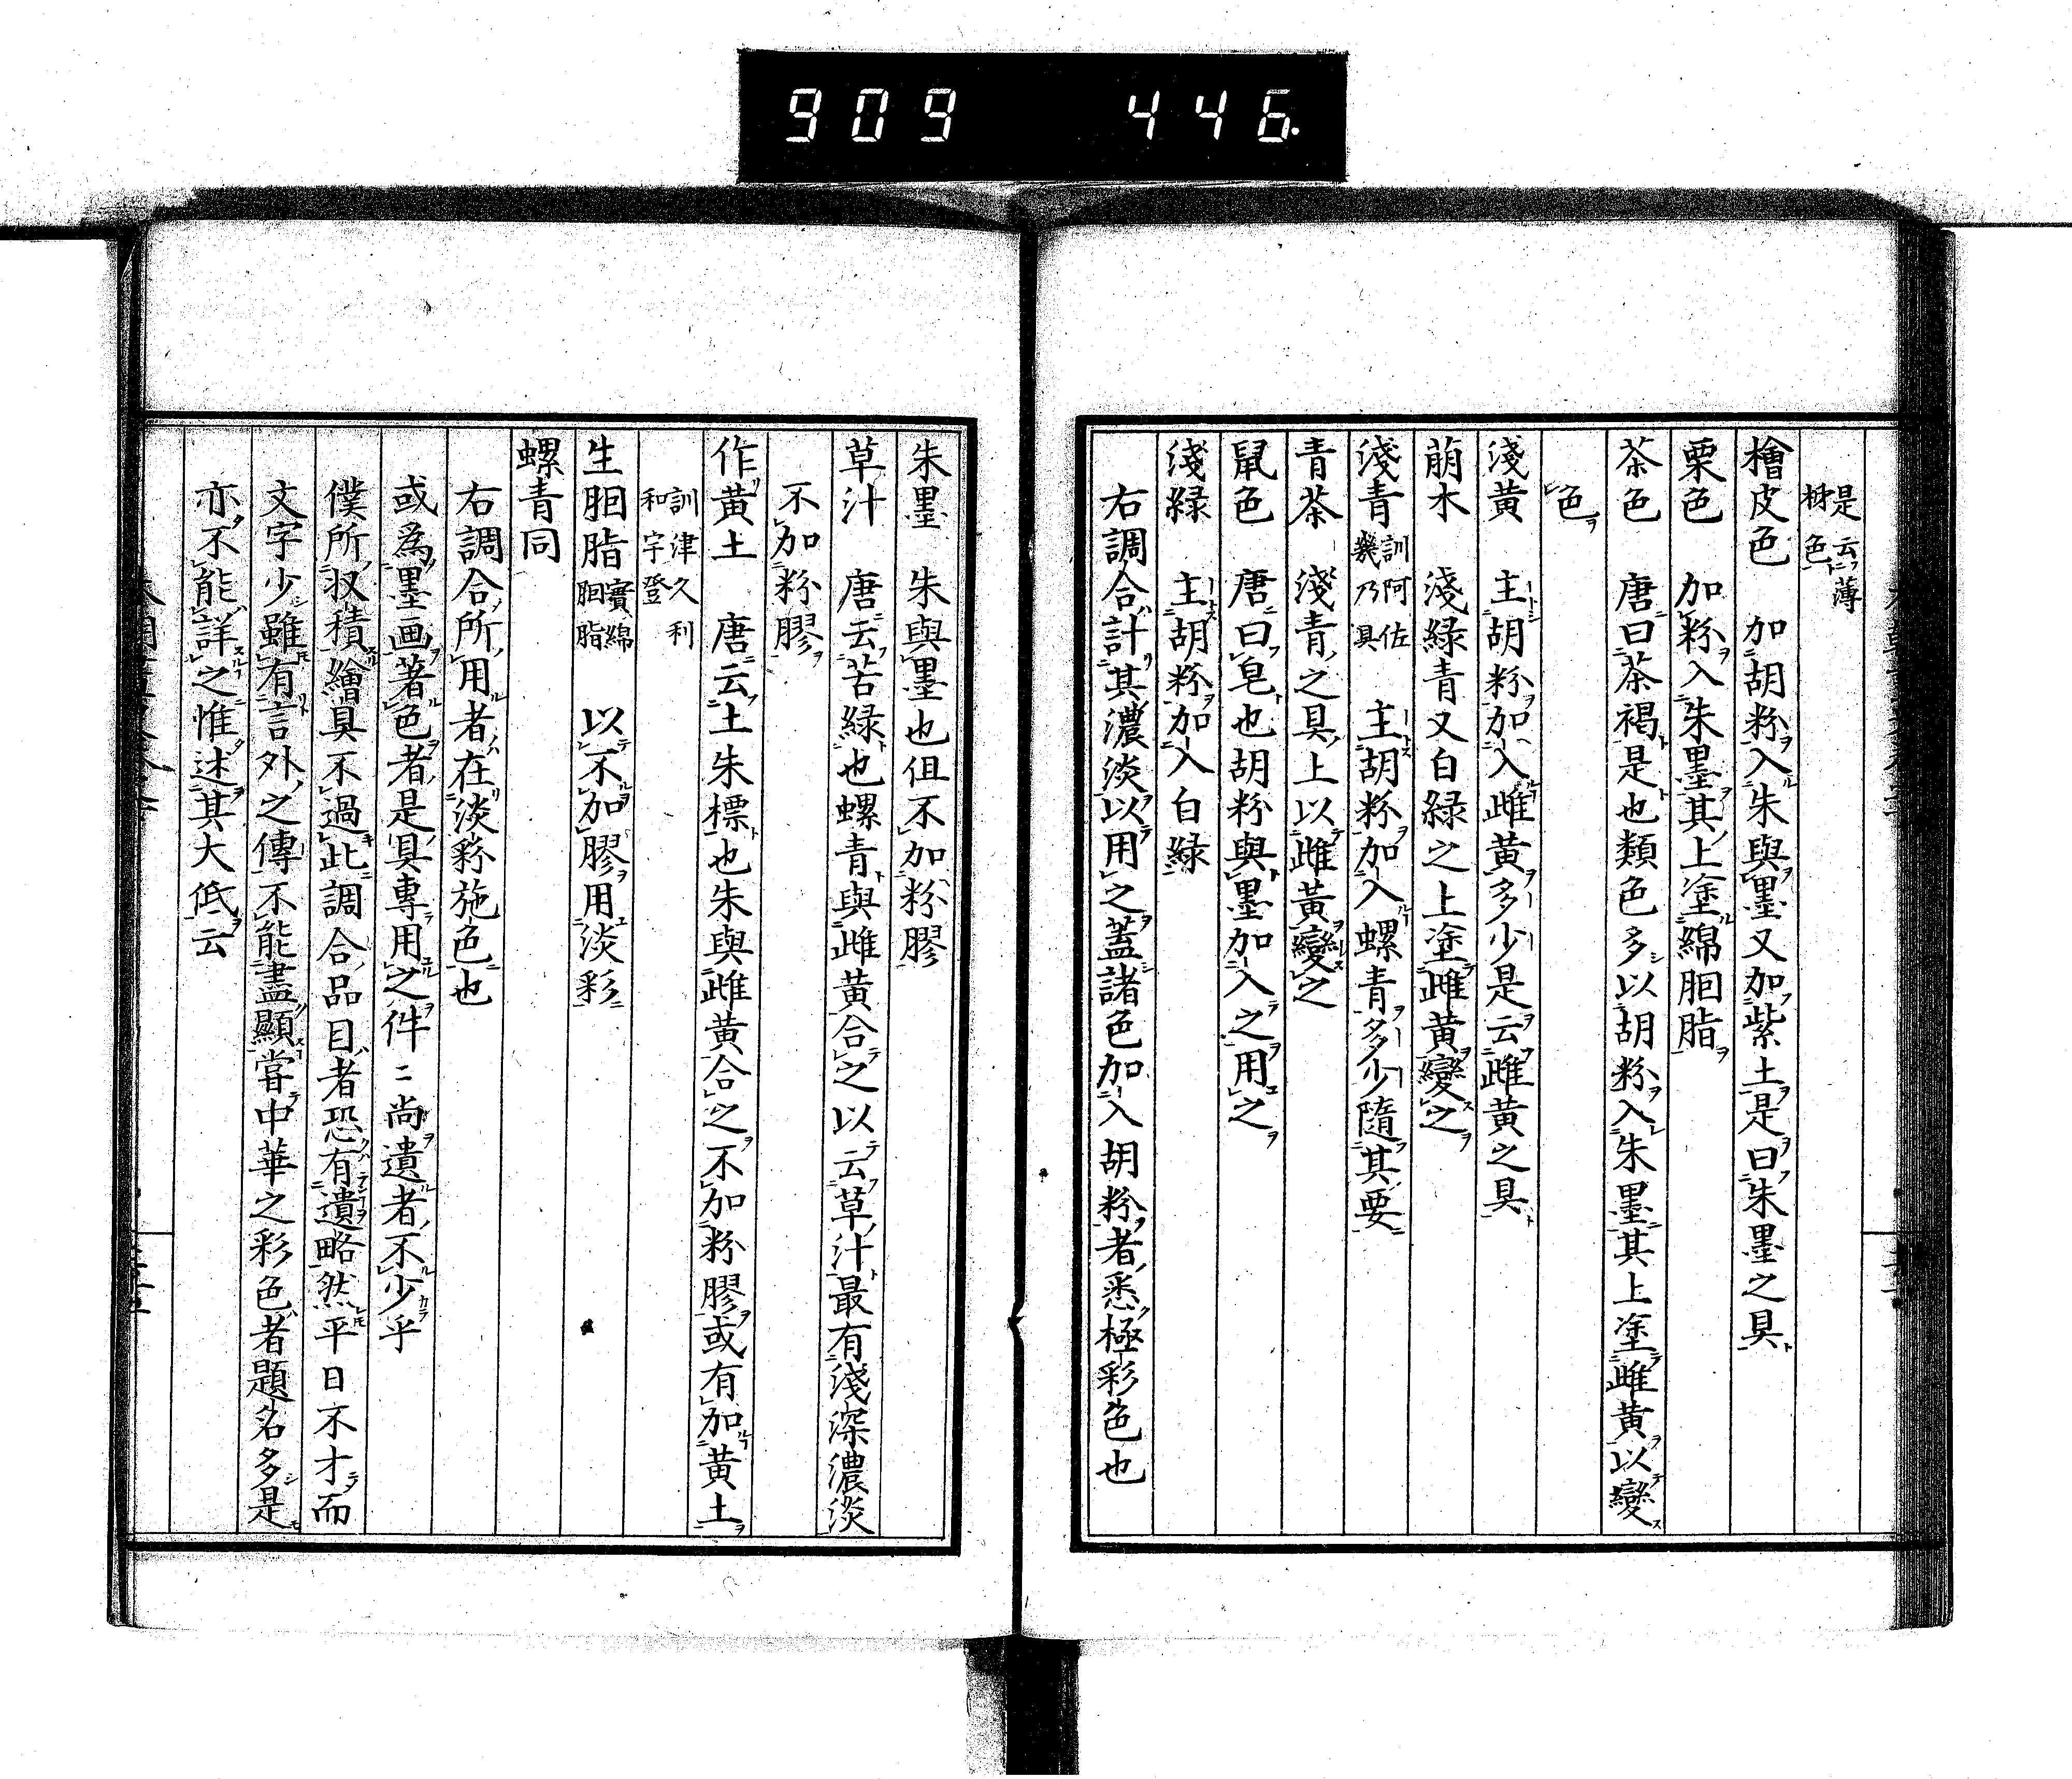 909 446.
是云薄
樹色
檜皮色 加胡粉入朱與墨又加紫土是曰朱墨之具
栗色 加粉入朱墨其上塗綿胭脂
茶色 唐曰茶褐是也類色多以胡粉入朱墨其上塗雌黄以變
色
淺黄 主胡粉加入雌黄多少是云雌黄之具
萠木 淺緑青又白緑之上塗雌黄變之
淺青 訓阿佐幾乃具 主胡粉加入螺青多少隨其要
青茶 淺青之具上以雌黄變之
鼠色 唐曰皂也胡粉與墨加入之用之
淺緑 主胡粉加入白緑
右調合計其濃淡以用之蓋諸色加入胡粉者悉極彩色也
朱墨 朱與墨也但不加粉膠
草汁 唐云苦緑也螺青與雌黄合之以云草汁最有淺深濃淡
不加粉膠
作黄土 唐云土朱標也朱與雌黄合之不加粉膠或有加黄土
訓津久利
和宇登
生胭脂 實綿胭脂 以不加膠用淡彩
螺青同
右調合所用者在淡彩施色也
或爲墨画著色者是具專用之件〻尚遺者不少乎
僕所收積繪具不過此調合品目者恐有遺略然平日不才而
文字少雖有言外之傳不能盡顯甞中華之彩色者題名多是
亦不能詳之惟述其大低云